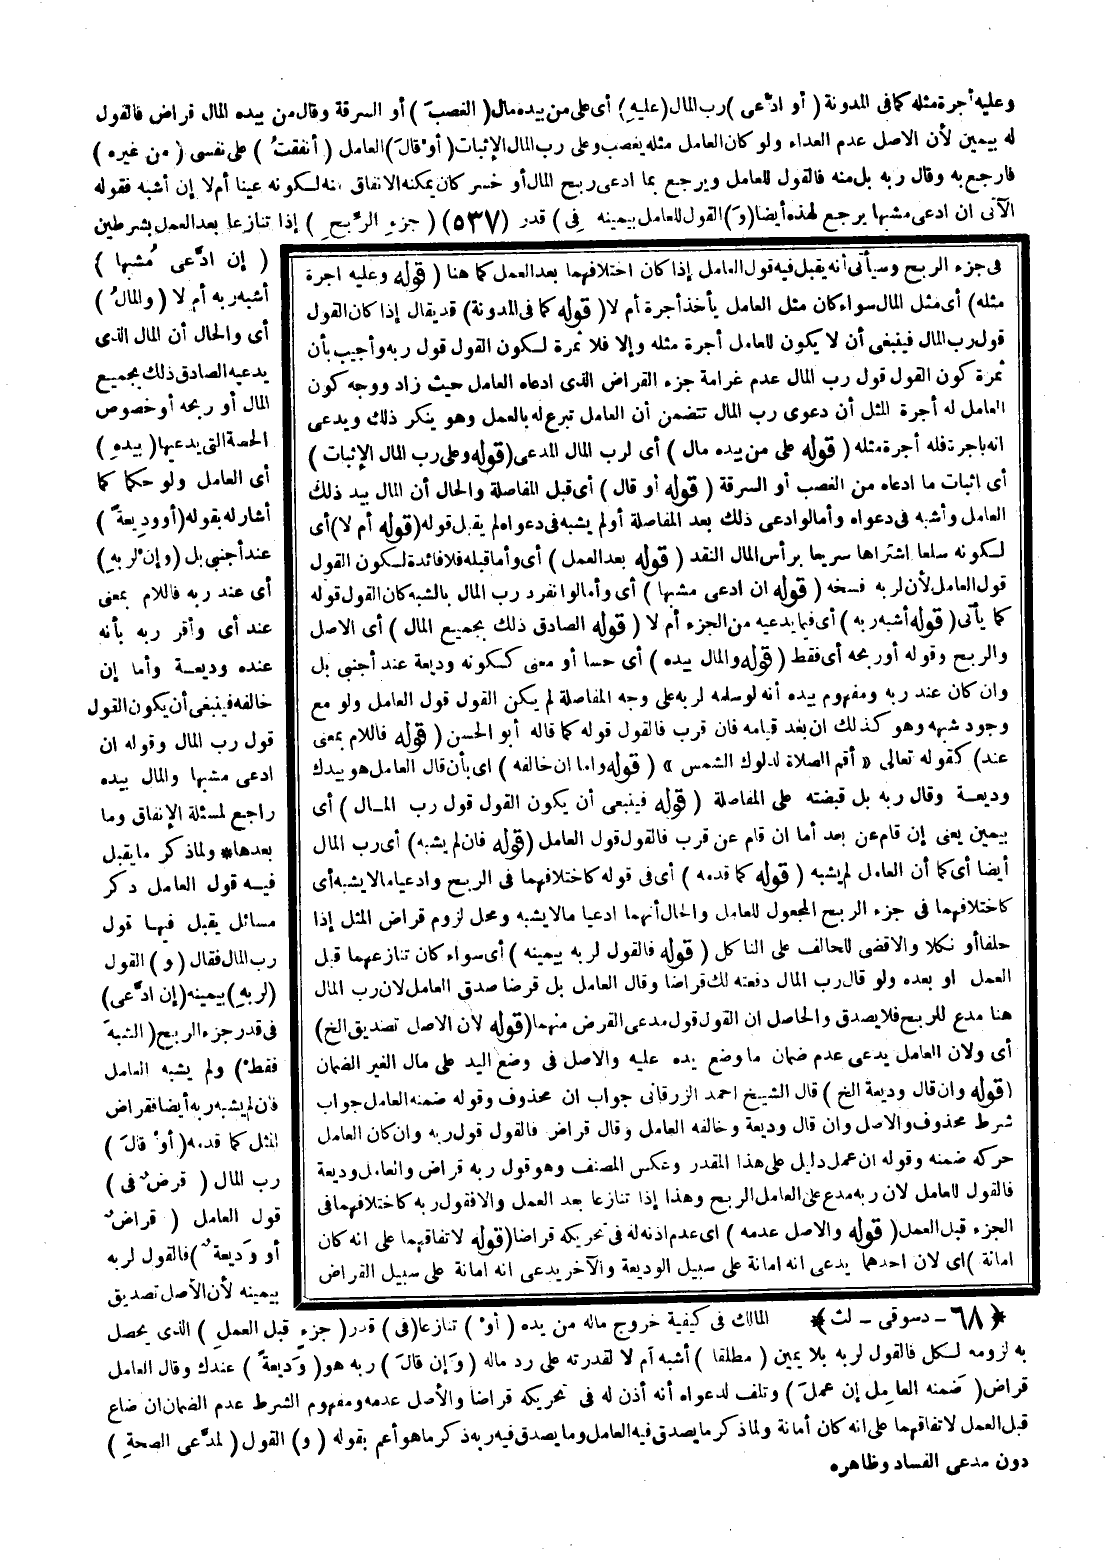 وعليه أجرة مثله كما فى المدونة ( أو ادَّعى ) رب المال (عليهِ) أى على من بيده مال ( الغصبَ ) أو السرقة وقال من بيده المال قراض فالقول
له بيمين لأن الاصل عدم العداء ولو كان العامل مثله يغصب وعلى رب المال الإثبات ( أو ْ قالَ ) العامل ( أنفقتُ ) على نفسى ( من غيره )
فارجع به وقال ربه بل منه فالقول للعامل ويرجع بما ادعى ربح المال أو خسر كان يمكنه الانفاق منه لكونه عينا أم لا إن أشبه فقوله
الآتى ان ادعى مشبها يرجع لهذه أيضا (وَ) القول للعامل بيمينه (فى) قدر (٥٣٧) ( جزءِ الرِّبحِ ) إذا تنازعا بعد العمل بشرطين
( إن ادَّعى مُشبها )
أشبه ربه أم لا ( والمالُ )
أى والحال أن المال الذى
يدعيه الصادق ذلك بجميع
المال أو ربحه أو خصوص
الحصة التى يدعيها ( بيدهِ )
أى العامل ولو حكما كما
أشار له بقوله (أو وديعةً )
عند أجنبى بل ( وإنْ لربهِ)
أى عند ربه فاللام بمعنى
عند أى وأقر ربه بأنه
عنده وديعة وأما إن
خالفه فينبغى أن يكون القول
قول رب المال وقوله ان
ادعى مشبها والمال بيده
راجع لمسئلة الإنفاق وما
بعدها* ولما ذكر ما يقبل
فيه قول العامل ذكر
مسائل يقبل فيها قول
رب المال فقال ( و ) القول
(لربهِ) بيمينه (إن ادَّعى)
فى قدر جزء الربح ( الشبهَ
فقطْ ) ولم يشبه العامل
فان لم يشبه ربه أيضا فقراض
المثل كما قدمه ( أوْ قالَ )
رب المال ( قرضٌ فى )
قول العامل ( قراضٌ
أو وَديعةٌ ) فالقول لربه
بيمينه لأن الأصل تصديق
فى جزء الربح وسيأتى أنه يقبل فيه قول العامل إذا كان اختلافهما بعد العمل كما هنا ( قوله وعليه اجرة
مثله ) أى مثل المال سواء كان مثل العامل يأخذ أجرة أم لا ( قوله كما فى المدونة) قد يقال إذا كان القول
قول رب المال فينبغى أن لا يكون للعامل أجرة مثله وإلا فلا ثمرة لكون القول قول ربه وأجيب بأن
ثمرة كون القول قول رب المال عدم غرامة جزء القراض الذى ادعاه العامل حيث زاد ووجه كون
العامل له أجرة المثل أن دعوى رب المال تتضمن أن العامل تبرع له بالعمل وهو ينكر ذلك ويدعى
انه باجرة فله أجرة مثله ( قوله على من بيده مال ) أى لرب المال المدعى (قوله وعلى رب المال الإثبات )
أى اثبات ما ادعاه من الغصب أو السرقة ( قوله أو قال ) أى قبل المفاصلة والحال أن المال بيد ذلك
العامل وأشبه فى دعواه وأما لو ادعى ذلك بعد المفاصلة أو لم يشبه فى دعواه لم يقبل قوله (قوله أم لا) أى
لكونه سلعا اشتراها سريعا برأس المال النقد ( قوله بعد العمل ) أى وأما قبله فلا فائدة لكون القول
قول العامل لأن لربه فسخه ( قوله ان ادعى مشبها ) أى وأما لو انفرد رب المال بالشبه كان القول قوله
كما يأتى ( قوله أشبه ربه ) أى فيما يدعيه من الجزء أم لا ( قوله الصادق ذلك بجميع المال ) أى الاصل
والربح وقوله أو ربحه أى فقط ( قوله والمال بيده ) أى حسا أو معنى ككونه وديعة عند أجنبى بل
وان كان عند ربه ومفهوم بيده أنه لو سلمه لربه على وجه المفاصلة لم يكن القول قول العامل ولو مع
وجود شبهه وهو كذلك ان بعد قيامه فان قرب فالقول قوله كما قاله أبو الحسن ( قوله فاللام بمعنى
عند) كقوله تعالى « أقم الصلاة لدلوك الشمس » ( قوله واما ان خالفه ) اى بأن قال العامل هو بيدك
وديعة وقال ربه بل قبضته على المفاصلة ( قوله فينبغى أن يكون القول قول رب المال ) أى
بيمين يعنى إن قام عن بعد أما ان قام عن قرب فالقول قول العامل (قوله فان لم يشبه) أى رب المال
أيضا أى كما أن العامل لم يشبه ( قوله كما قدمه ) أى فى قوله كاختلافهما فى الربح وادعيا مالا يشبه أى
كاختلافهما فى جزء الربح المجعول للعامل والحال أنهما ادعيا مالا يشبه ومحل لزوم قراض المثل إذا
حلفا أو نكلا والا قضى للحالف على الناكل ( قوله فالقول لربه بيمينه ) أى سواء كان تنازعهما قبل
العمل او بعده ولو قال رب المال دفعته لك قراضا وقال العامل بل قرضا صدق العامل لان رب المال
هنا مدع للربح فلا يصدق والحاصل ان القول قول مدعى القرض منهما (قوله لأن الاصل تصديق الخ)
أى ولان العامل يدعى عدم ضمان ما وضع يده عليه والاصل فى وضع اليد على مال الغير الضمان
(قوله وان قال وديعة الخ ) قال الشيخ احمد الزرقانى جواب ان محذوف وقوله ضمنه العامل جواب
شرط محذوف والاصل وان قال وديعة وخالفه العامل وقال قراض فالقول قول ربه وان كان العامل
حركه ضمنه وقوله ان عمل دليل على هذا المقدر وعكس المصنف وهو قول ربه قراض والعامل وديعة
فالقول للعامل لان ربه مدع على العامل الربح وهذا إذا تنازعا بعد العمل والا فقول ربه كاختلافهما فى
الجزء قبل العمل ( قوله والاصل عدمه ) اى عدم اذنه له فى تحريكه قراضا (قوله لاتفاقهما على انه كان
امانة ) اى لان احدهما يدعى انه امانة على سبيل الوديعة والآخر يدعى انه امانة على سبيل القراض
﴿ ٦٨ - دسوقى - لث ﴾ المالك فى كيفية خروج ماله من يده ( أوْ ) تنازعا (فى) قدر ( جزءٍ قبل العملِ ) الذى يحصل
به لزومه لكل فالقول لربه بلا يمين ( مطلقا ) أشبه أم لا لقدرته على رد ماله ( وَإن قالَ ) ربه هو ( وَديعةً ) عندك وقال العامل
قراض ( ضمنه العامِل إن عملَ ) وتلف لدعواه أنه أذن له فى تحريكه قراضا والأصل عدمه ومفهوم الشرط عدم الضمان ان ضاع
قبل العمل لاتفاقهما على انه كان أمانة ولما ذكر ما يصدق فيه العامل وما يصدق فيه ربه ذكر ما هو أعم بقوله ( و) القول ( لمدَّعى الصحةِ )
دون مدعى الفساد وظاهره